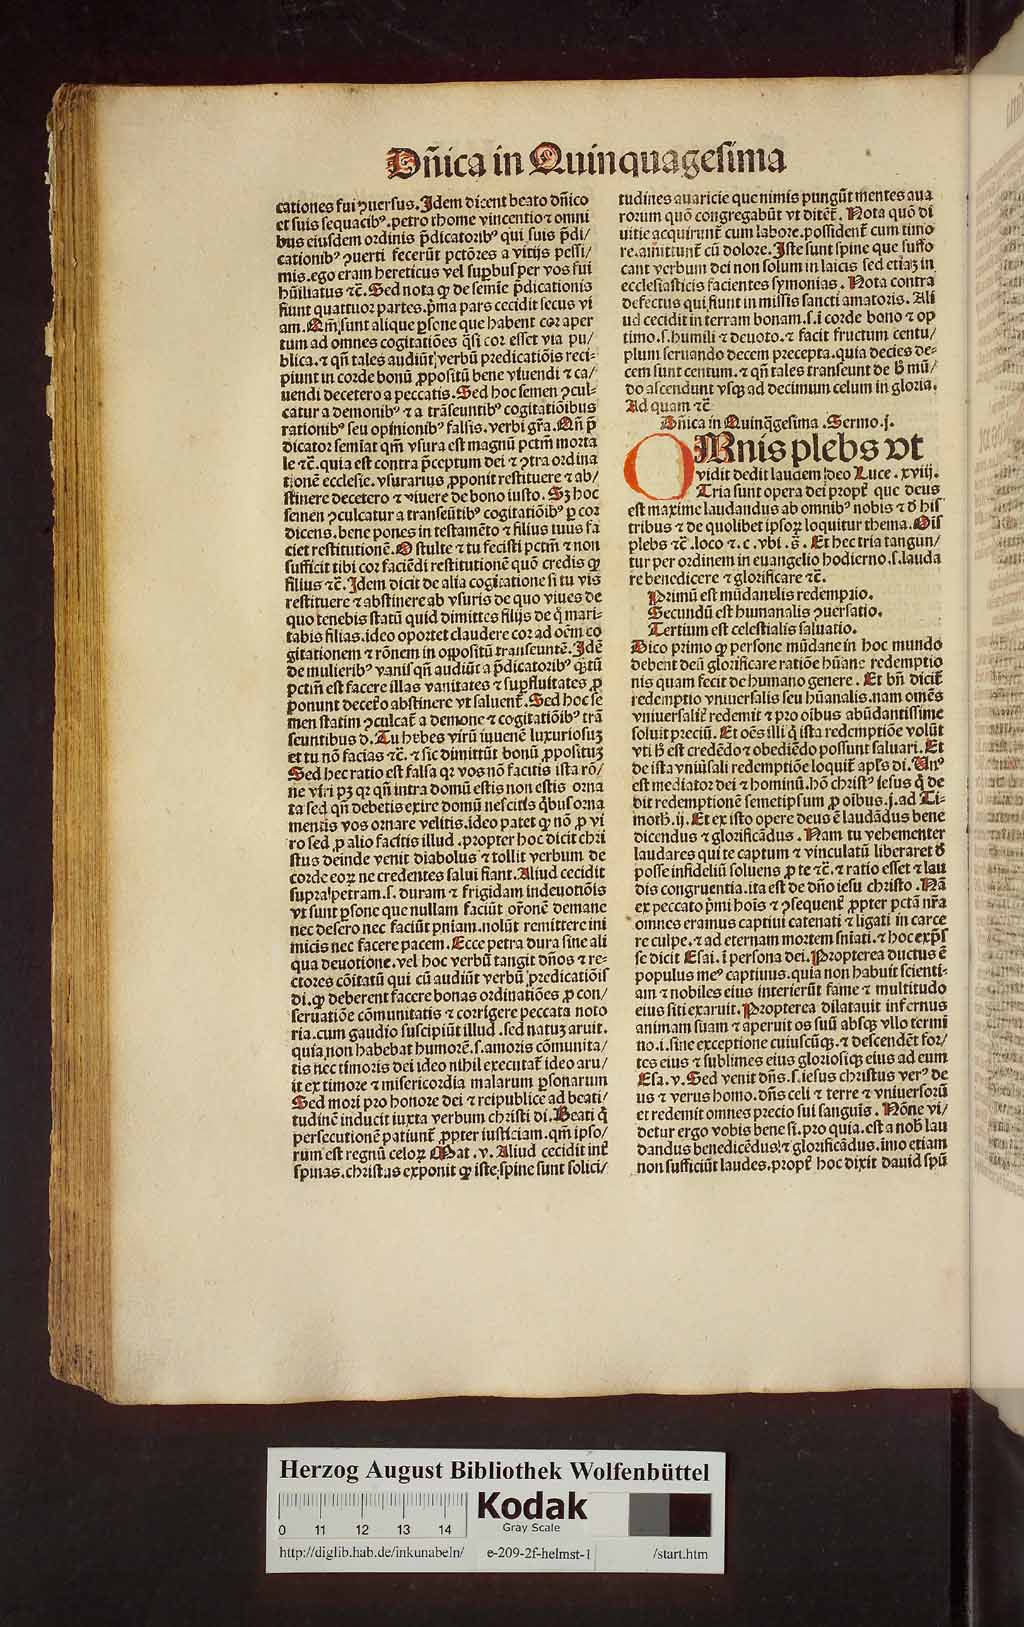 Dñica in Quinquagesima
cationes fui ꝯuersus. Idem dicent beato dñico
et suis sequacibꝰ. petro rhome vincentio ⁊ omni
bus eiusdem ordinis p̄dicatoribꝰ qui suis p̄di/
cationibꝰ ꝯuerti fecerūt pctōres a vitijs pessi/
mis. ego eram hereticus vel suꝑbus per vos fui
hūiliatus ⁊c̄. Sed nota ꝙ de semīe p̄dicationis
fiunt quattuor partes. p̄ma pars cecidit secus vi
am. Qm̄ sunt alique ꝑsone que habent cor aper
tum ad omnes cogitatiōes q̄si cor esset via pu/
blica. ⁊ qn̄ tales audiūt verbū predicatiōis reci-
piunt in corde bonū ꝓpositū bene viuendi ⁊ ca/
uendi decetero a peccatis. Sed hoc semen ꝯcul-
catur a demonibꝰ ⁊ a trāseuntibꝰ cogitatiōibus
rationibꝰ seu opinionibꝰ falsis. verbi gr̄a. Qn̄ p̄
dicator semīat qm̄ vsura est magnū pctm̄ morta
le ⁊c̄. quia est contra p̄ceptum dei ⁊ ꝯtra ordina
tionē ecclesie. vsurarius ꝓponit restituere ⁊ ab/
stinere decetero ⁊ viuere de bono iusto. Sꝫ hoc
semen ꝯculcatur a transeūtibꝰ cogitatiōibꝰ ꝑ cor
dicens. bene pones in testamēto ⁊ filius tuus fa
ciet restitutionē. O stulte ⁊ tu fecisti pctm̄ ⁊ non
sufficit tibi cor faciēdi restitutionē quō credis ꝙ
filius ⁊c̄. Idem dicit de alia cogitatione si tu vis
restituere ⁊ abstinere ab vsuris de quo viues de
quo tenebis statū quid dimittes filijs de q̄ mari-
tabis filias. ideo oportet claudere cor ad oēm co
gitationem ⁊ rōnem in oppositū transeuntē. Idē
de mulieribꝰ vanis qn̄ audiūt a p̄dicatoribꝰ ꝙtū
pctm̄ est facere illas vanitates ⁊ suꝑfluitates ꝓ
ponunt deceťo abstinere vt saluent̄. Sed hoc se
men statim ꝯculcat̄ a demone ⁊ cogitatiōibꝰ trā
seuntibus d. Tu hebes virū iuuenē luxuriosuꝫ
et tu nō facias ⁊c̄. ⁊ sic dimittūt bonū ꝓposituꝫ
Sed hec ratio est falsa qꝛ vos nō facitis ista rō/
ne viri pꝫ qꝛ qn̄ intra domū estis non estis orna
ta sed qn̄ debetis exire domū nescitis q̄bus orna
mentis vos ornare velitis. ideo patet ꝙ nō ꝓ vi
ro sed ꝓ alio facitis illud. propter hoc dicit chri
stus deinde venit diabolus ⁊ tollit verbum de
corde eoꝝ ne credentes salui fiant. Aliud cecidit
supra petram. s. duram ⁊ frigidam indeuotiōis
vt sunt ꝑsone que nullam faciūt or̄onē demane
nec desero nec faciūt pn̄iam. nolūt remittere ini
micis nec facere pacem. Ecce petra dura sine ali
qua deuotione. vel hoc verbū tangit dn̄os ⁊ re-
ctores cōitatū qui cū audiūt verbū predicatiōis
di. ꝙ deberent facere bonas ordinatiōes ꝓ con/
seruatiōe cōmunitatis ⁊ corrigere peccata noto
ria. cum gaudio suscipiūt illud. sed natuꝫ aruit.
quia non habebat humorē. s. amoris cōmunita/
tis nec timoris dei ideo nihil executat̄ ideo aru/
it ex timore ⁊ misericordia malarum ꝑsonarum
Sed mori pro honore dei ⁊ reipublice ad beati/
tudinē inducit iuxta verbum christi di. Beati q̄
persecutionē patiunt̄ ꝓpter iusticiam. qm̄ ipso/
rum est regnū celoꝝ Mat. v. Aliud cecidit int̄
spinas. christus exponit ꝙ iste spine sunt solici/
tudines auaricie que nimis pungūt mentes aua
rorum quō congregabūt vt ditēt̄. Nota quō di
uitie acquirunt̄ cum labore. possident̄ cum timo
re. amittunt̄ cū dolore. Iste sunt spine que suffo
cant verbum dei non solum in laicis sed etiaꝫ in
ecclesiasticis facientes symonias. Nota contra
defectus qui fiunt in missis sancti amatoris. Ali
ud cecidit in terram bonam. s. ī corde bono ⁊ op
timo. s. humili ⁊ deuoto. ⁊ facit fructum centu/
plum seruando decem precepta. quia decies de-
cem sunt centum. ⁊ qn̄ tales transeunt de ħ mū/
do ascendunt vsqꝫ ad decimum celum in gloria.
Ad quam ⁊c̄
Dñica in Quinq̄gesima. Sermo. j.
OMnis plebs vt
vidit dedit laudem deo Luce. xviij.
Tria sunt opera dei propt̄ que deus
est maxime laudandus ab omnibꝰ nobis ⁊ ď his
tribus ⁊ de quolibet ipsoꝝ loquitur thema. Oīs
plebs ⁊c̄. loco ⁊. c. vbi. s̄. Et hec tria tangun/
tur per ordinem in euangelio hodierno. s. lauda
re benedicere ⁊ glorificare ⁊c̄.
Primū est mūdanalis redemptio.
Secundū est humanalis ꝯuersatio.
Tertium est celestialis saluatio.
Dico primo ꝙ persone mūdane in hoc mundo
debent deū glorificare ratiōe hūane redemptio
nis quam fecit de humano genere. Et bn̄ dicit̄
redemptio vniuersalis seu hūanalis. nam omēs
vniuersalit̄ redemit ⁊ pro oibus abūdantissime
soluit preciū. Et oēs illi q̄ ista redemptiōe volūt
vti ħ est credēdo ⁊ obediēdo possunt saluari. Et
de ista vniūsali redemptiōe loquit̄ apl̄s di. Vnꝰ
est mediator dei ⁊ hominū. hō christꝰ iesus q̄ de
dit redemptionē semetipsum ꝓ oibus. j. ad Ti-
moth. ij. Et ex isto opere deus ē laudādus bene
dicendus ⁊ glorificādus. Nam tu vehementer
laudares qui te captum ⁊ vinculatū liberaret ď
posse infideliū soluens ꝓ te ⁊c̄. ⁊ ratio esset ⁊ lau
dis congruentia. ita est de dn̄o iesu christo. Nā
ex peccato p̄mi hoīs ⁊ ꝯsequent̄ ꝓpter pctā nr̄a
omnes eramus captiui catenati ⁊ ligati in carce
re culpe. ⁊ ad eternam mortem sn̄iati. ⁊ hoc exp̄s
se dicit Esai. ī persona dei. Propterea ductus ē
populus meꝰ captiuus. quia non habuit scienti-
am ⁊ nobiles eius interierūt fame ⁊ multitudo
eius siti exaruit. Propterea dilatauit infernus
animam suam ⁊ aperuit os suū absqꝫ vllo termi
no. i. sine exceptione cuiuscūqꝫ. ⁊ descendēt for/
tes eius ⁊ sublimes eius gloriosiqꝫ eius ad eum
Esa. v. Sed venit dn̄s. s. iesus christus verꝰ de
us ⁊ verus homo. dn̄s celi ⁊ terre ⁊ vniuersorū
et redemit omnes precio sui sanguīs. Nōne vi/
detur ergo vobis bene si. pro quia. est a nob̄ lau
dandus benedicēdus ⁊ glorificādus. imo etiam
non sufficiūt laudes. propt̄ hoc dixit dauid spū
Herzog August Bibliothek Wolfenbüttel
0 11 12 13 14
Kodak
Gray Scale
http://diglib.hab.de/inkunabeln/ e-209-2f-helmst-1 /start.htm